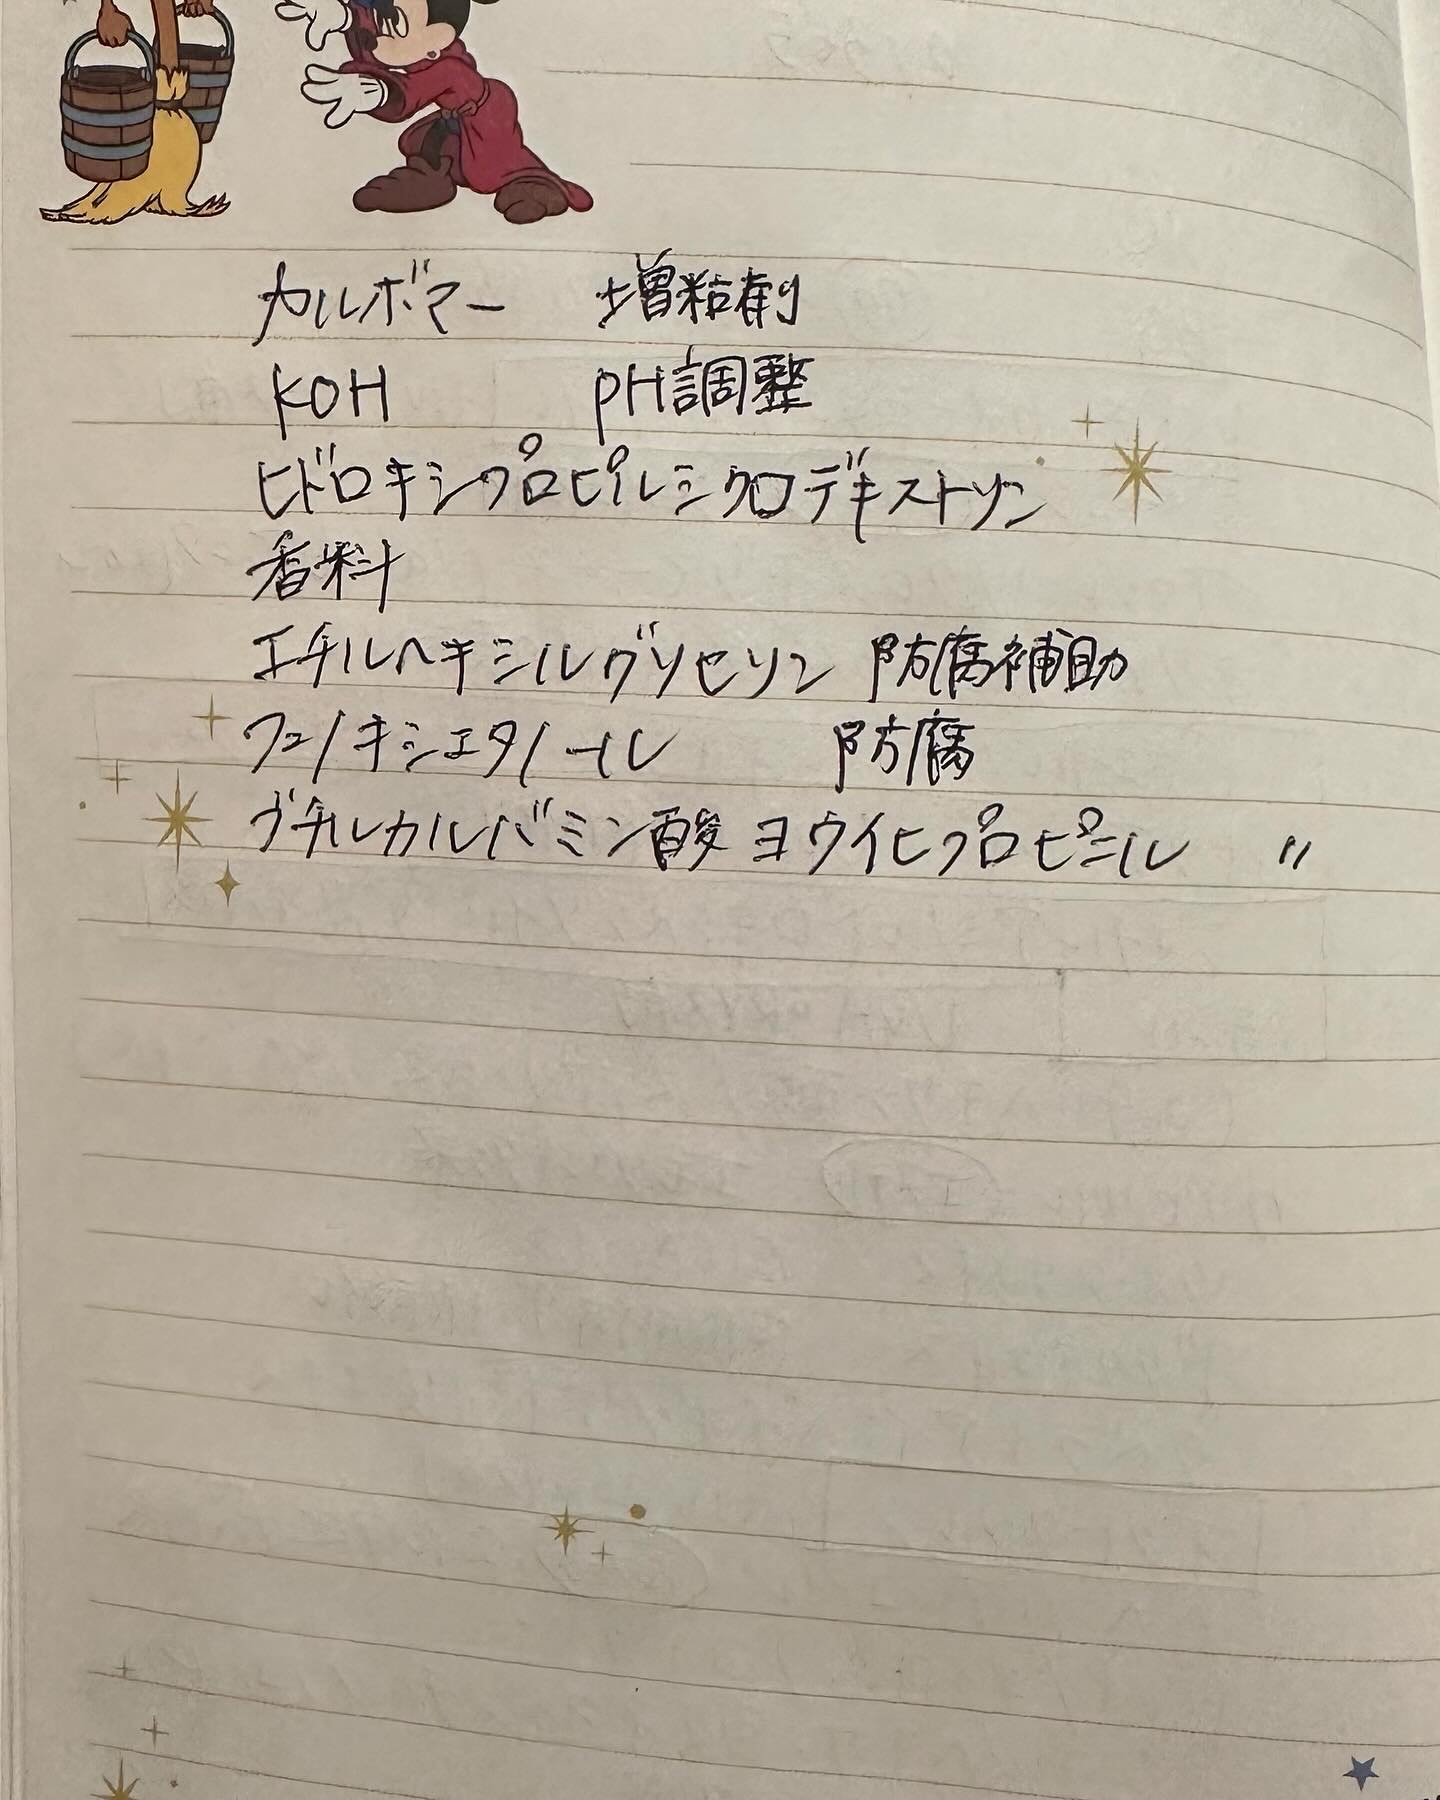 カルボマー 増粘剤
KOH pH調整
ヒドロキシプロピルシクロデキストリン
香料
エチルヘキシルグリセリン 防腐補助
フェノキシエタノール 防腐
ブチルカルバミン酸 ヨウ化プロピニル 〃